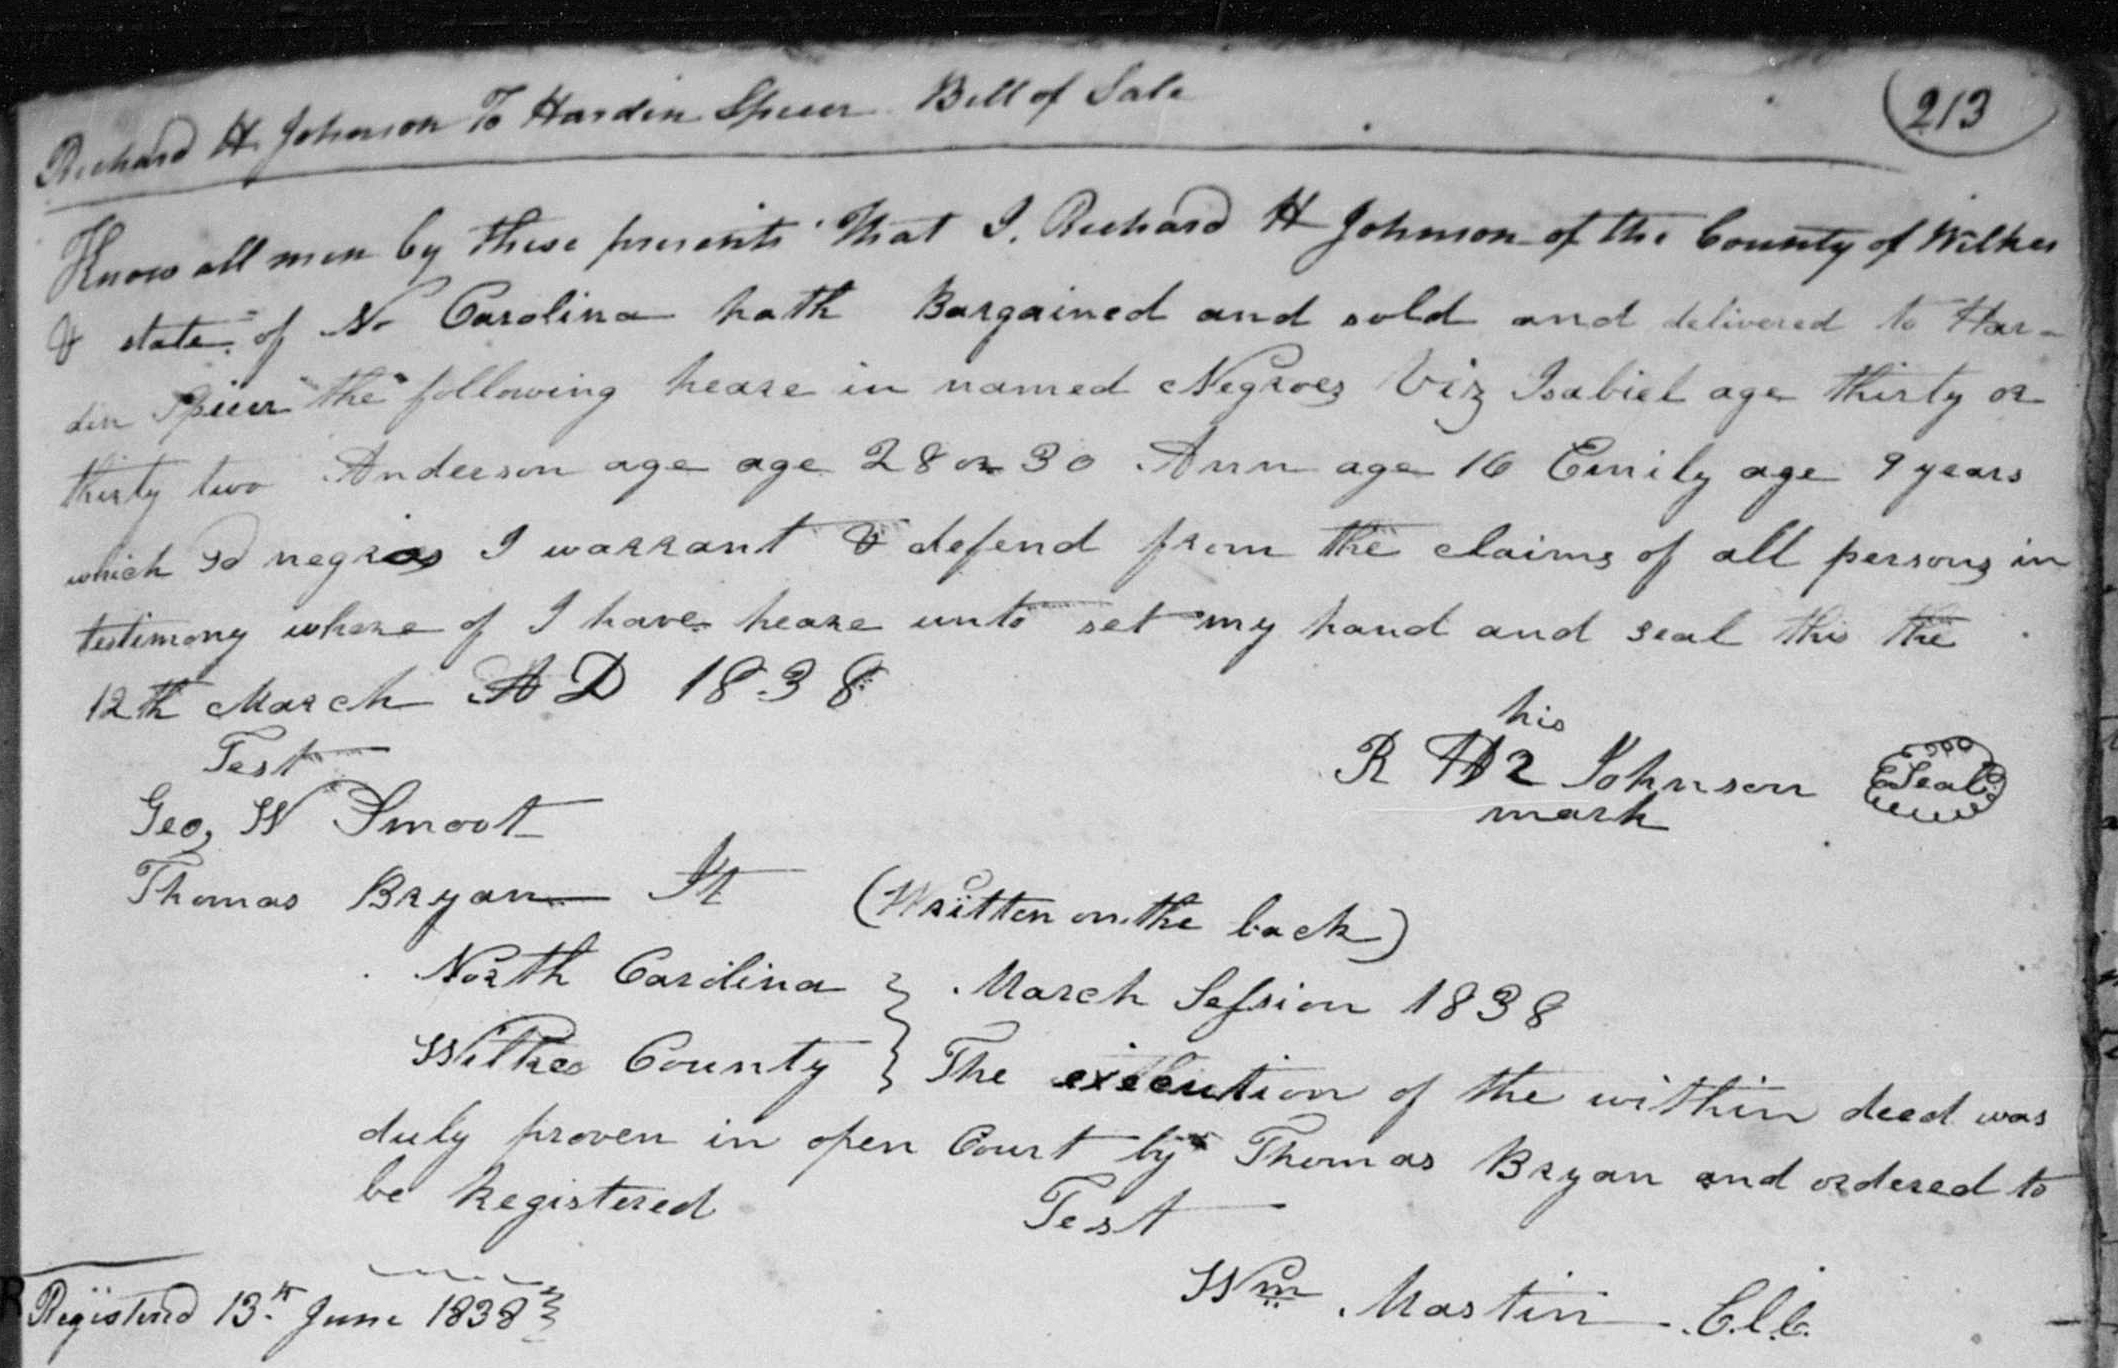 Richard H. Johnson To Hardin Spicer Bill of Sale
213
Know all men by these presents That I. Richard H Johnson of the County of Wilkes
& state of No Carolina hath Bargained and sold and delivered to Har-
din Spicer the following heare in named Negroes Viz Isabiel age thirty or
thirty two Anderson age age 28 or 30 Ann age 16 Emily age 9 years
which sd negros I warrant & defend from the claims of all persons in
testimony where of I have heare unto set my hand and seal this the
12th March A D 1838
his
Test
R H Johnson Seal
mark
Geo, W Smoot
Thomas Bryan Jt
(Written on the back)
North Carolina } March Session 1838
Wilkes County } The execution of the within deed was
duly proven in open Court by Thomas Bryan and ordered to
be Registered
Test
Wm Mastin C.l.C.
Registered 13th June 1838